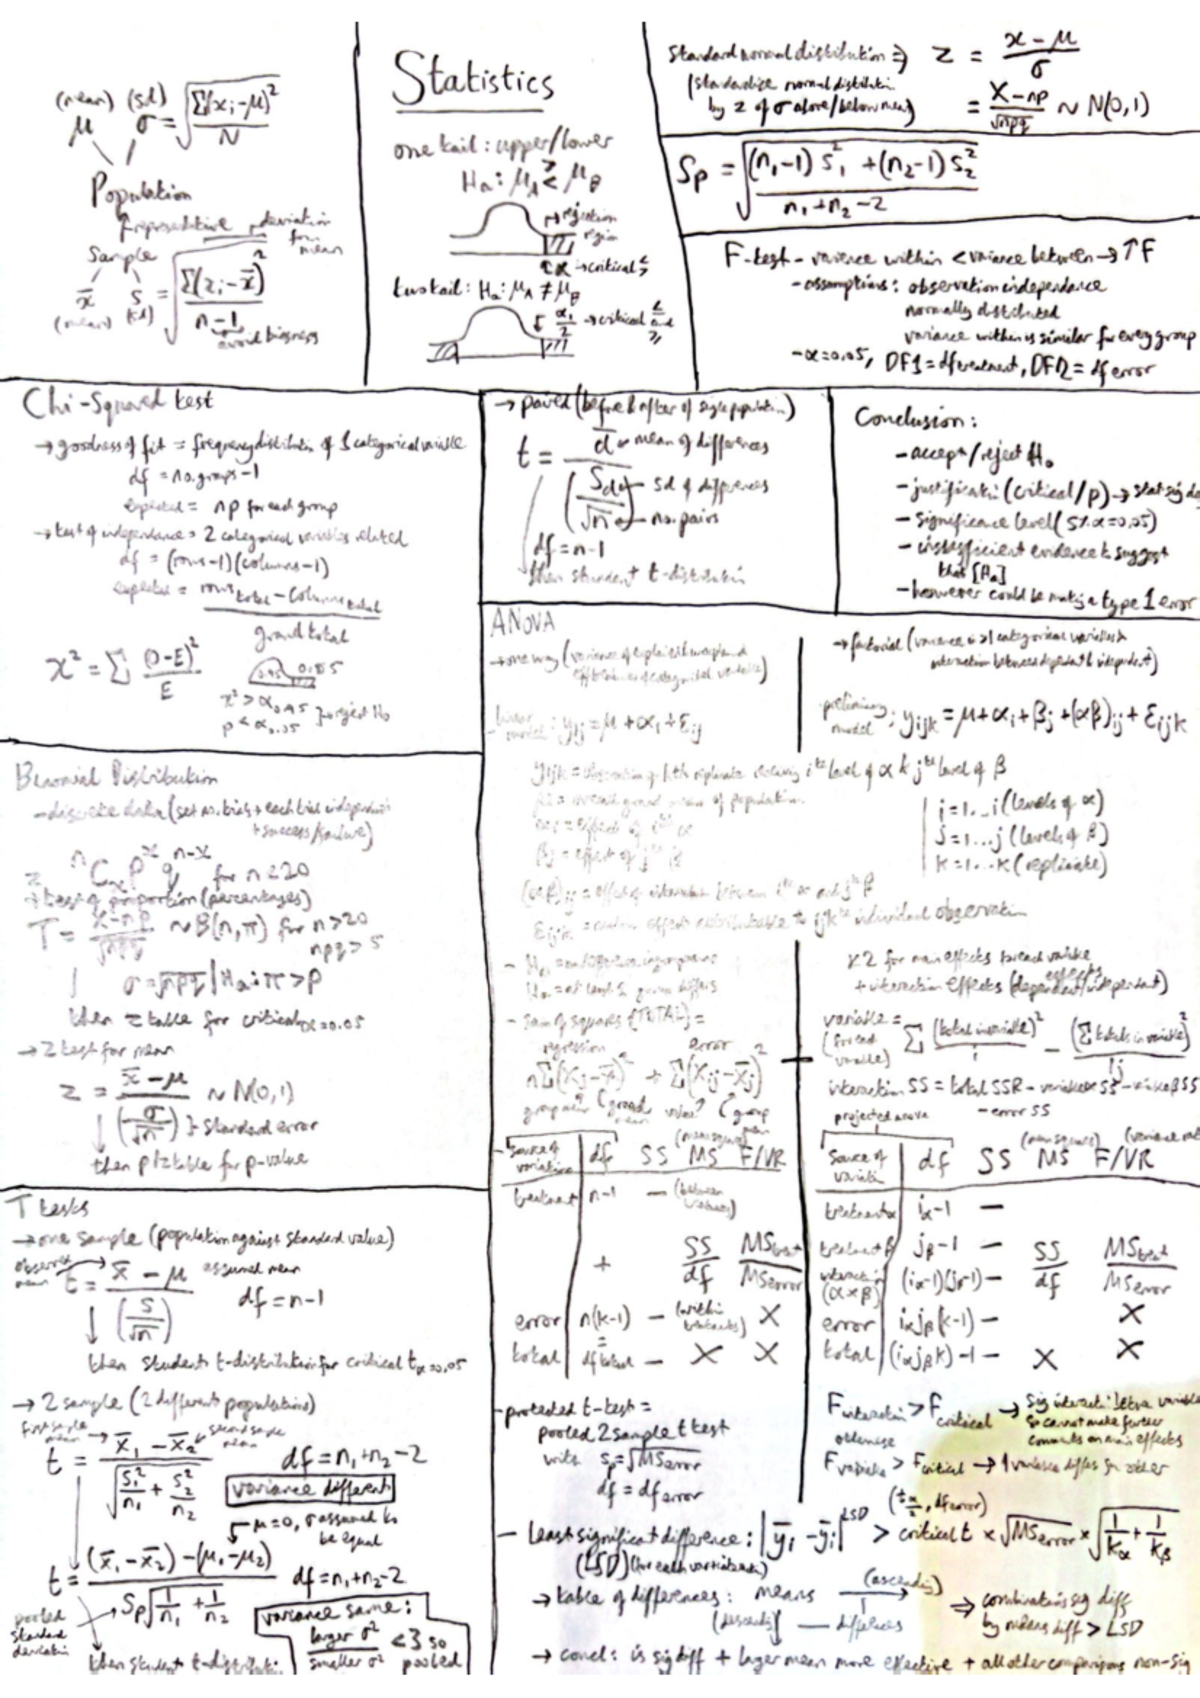 (mean) (sd)
μ σ = √(Σ(xᵢ-μ)²/N)
Population
Representitive
deviation from mean
Sample
x̄ s = √(Σ(xᵢ-x̄)²/(n-1))
(mean) (sd)
avoid biasness
Statistics
one tail: upper/lower
Hₐ: μ_A ≷ μ_B
rejection region
α → critical ≶
two tail: Hₐ: μ_A ≠ μ_B
α/2 → critical ≤ and ≥
Standard normal distribution ⇒ z = (x-μ)/σ
(standardise normal distribution
by z of σ above/below mean)
= (X-np)/√npq ~ N(0,1)
Sp = √(((n₁-1)S₁² + (n₂-1)S₂²)/(n₁+n₂-2))
F-test - variance within < variance between → ↑F
- assumptions: observation independence
normally distributed
variance within is similar for every group
- α=0.05, DF1 = df treatment, DF2 = df error
Chi-Squared test
→ goodness of fit = frequency distribution of 1 categorical variable
df = no. groups -1
expected = np for each group
→ test of independence = 2 categorical variables related
df = (rows-1)(columns-1)
expected = (rows total - columns total)/grand total
x² = Σ (O-E)²/E
0.95
x² > α 0.95
p < α 0.05
} → reject H₀
→ paired (before & after of single population)
t = d̄/(Sd/√n)
← mean of differences
← sd of differences
← no. pairs
df = n-1
then student t-distribution
Conclusion:
- accept/reject H₀
- justification (critical/p) → stat sig
- significance level (5% α=0.05)
- insufficient evidence to suggest
that [Hₐ]
- however could be making a type 1 error
Binomial Distribution
- discrete data (set no. trials + each trial independent
+ success/failure)
ⁿCₓ pˣ qⁿ⁻ˣ for n≤20
→ test of proportion (percentages)
T = (X-np)/√npq ~ B(n,π) for n>20
npq > 5
σ = √npq | Hₐ: π > p
then z table for critical α=0.05
→ Z test for mean
z = (x̄-μ)/(σ/√n) ~ N(0,1)
} standard error
then p/z table for p-value
ANOVA
→ one way
linear model: yᵢⱼ = μ+αᵢ+εᵢⱼ
→ factorial (variance in >1 categorical variables &
interaction between dependent & independent)
preliminary model: yᵢⱼₖ = μ+αᵢ+βⱼ+(αβ)ᵢⱼ+εᵢⱼₖ
yᵢⱼₖ = observation of kth replicate receiving iᵗʰ level of α & jᵗʰ level of β
μ = overall grand mean of population
αᵢ = effect of iᵗʰ α
βⱼ = effect of jᵗʰ β
(αβ)ᵢⱼ = effect of interaction between iᵗʰ α and jᵗʰ β
εᵢⱼₖ = random effects attributable to ijkᵗʰ individual observation
i=1...i (levels of α)
j=1...j (levels of β)
k=1...k (replicate)
Hₐ = at least 2 given differs
- sum of squares (TOTAL) =
regression error
nΣ(x̄ⱼ-x̄)² + Σ(xᵢⱼ-x̄ⱼ)²
group grand mean value group mean
x2 for main effects for each variable
+ interaction effects (dependent/independent)
effects
variable = (for each variable) Σ (total in variable)²/i - (Σ totals in variable)²/ij
interaction SS = total SSR - variable α SS - variable β SS
- error SS
projected above
Source of variation df SS MS F/VR
(mean square)
treatment n-1 — (between treatments)
+ SS/df MStreat/MSerror
error n(k-1) — (within treatments) X
total = df total — X X
Source of variation df SS MS F/VR
(mean square)
treatment α iα-1 —
treatment β jβ-1 — SS/df MStreat/MSerror
interaction (α×β) (iα-1)(jβ-1) —
error iαjβ(k-1) — X
total (iαjβk)-1 — X X
T tests
→ one sample (population against standard value)
observed mean → t = (x̄-μ)/(s/√n) assumed mean
df = n-1
then students t-distribution for critical t α=0.05
→ 2 sample (2 different populations)
first sample mean → second sample mean
t = (x̄₁-x̄₂)/√(s₁²/n₁+s₂²/n₂) df = n₁+n₂-2
variance different
μ=0, σ assumed to
be equal
t = ((x̄₁-x̄₂)-(μ₁-μ₂))/(Sp√(1/n₁+1/n₂)) df = n₁+n₂-2
pooled standard deviation
variance same:
larger σ²/smaller σ² <3 so pooled
then student t-distribution
- protected t-test =
pooled 2 sample t test
with sp=√MSerror
df = df error
F interaction > F critical → Sig interaction between variables
so cannot make further
comments on main effects
otherwise
F variable > F critical → 1 variable differs from other
(t α/2, df error)
- Least significant difference: |ȳᵢ-ȳⱼ| LSD > critical t × √MSerror × √(1/kα+1/kβ)
(LSD) (for each variable)
→ table of differences: means (ascending)
(descending) — differences
⇒ combination sig diff
by means diff > LSD
→ concl: is sig diff + larger mean more effective + all other comparisons non-sig